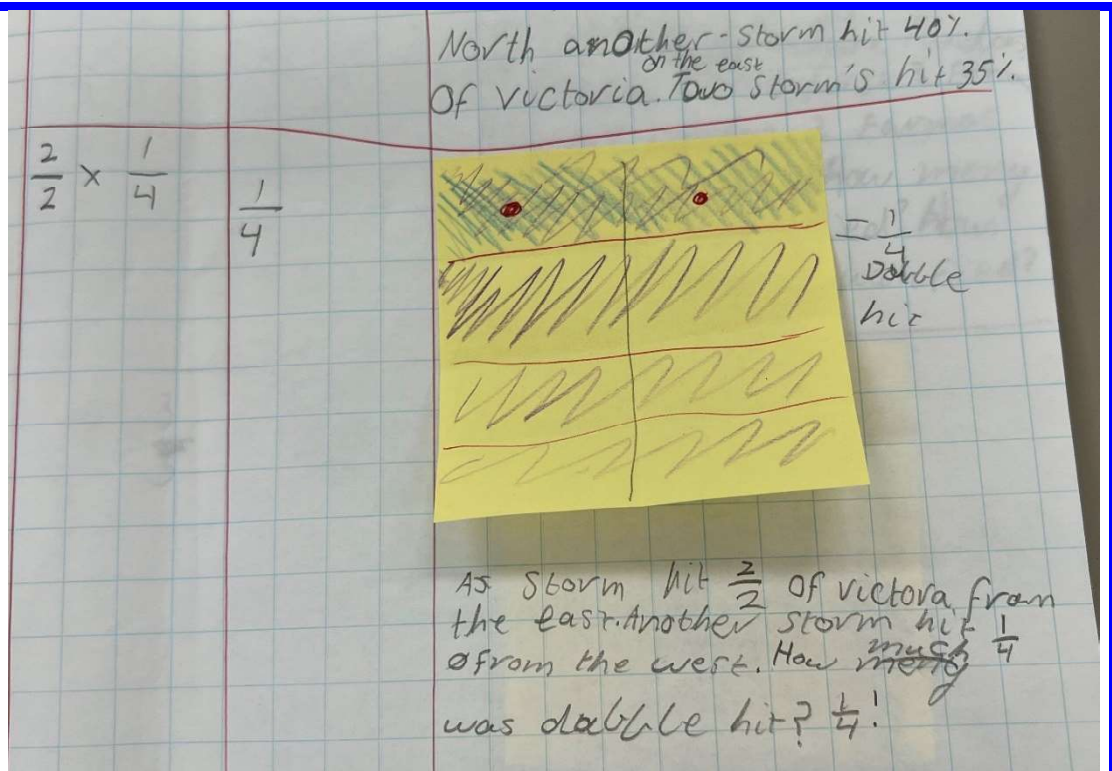 North another storm hit 40%.
on the east
Of victoria. Two storm's hit 35%.
2/2 × 1/4
1/4
= 1/4
Double
hit
As storm hit 2/2 of victora from
the east. Another storm hit 1/4
from the west. How much
was dabble hit? 1/4!